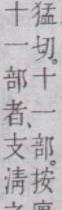 猛切。十一部。按
十一部者、支淸